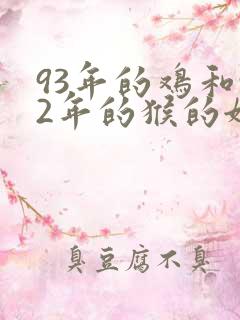 93年的鸡和
2年的猴的
臭豆腐不臭